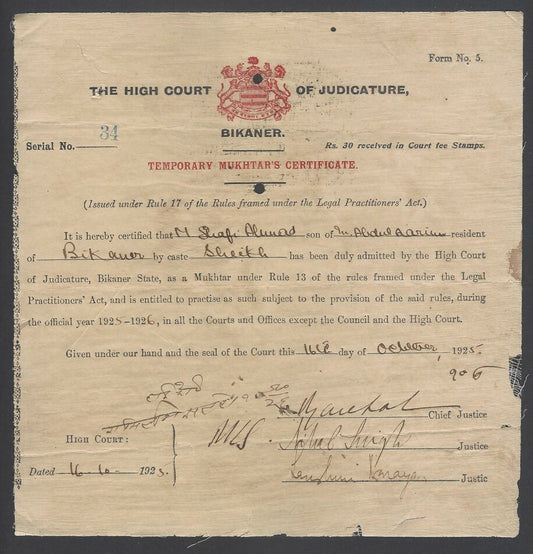 Form No. 5.
THE HIGH COURT OF JUDICATURE,
BIKANER.
Serial No. 34
Rs. 30 received in Court fee Stamps.
TEMPORARY MUKHTAR'S CERTIFICATE.
(Issued under Rule 17 of the Rules framed under the Legal Practitioners' Act.)
It is hereby certified that M Shafi Ahmad son of M. Abdul Karim resident
of Bikaner by caste Sheikh has been duly admitted by the High Court
of Judicature, Bikaner State, as a Mukhtar under Rule 13 of the rules framed under the Legal
Practitioners' Act, and is entitled to practise as such subject to the provision of the said rules, during
the official year 1925-1926, in all the Courts and Offices except the Council and the High Court.
Given under our hand and the seal of the Court this 16th day of October, 1925.
Chief Justice
HIGH COURT:
Singh Justice
Dated 16-10- 1925.
Narayan Justic